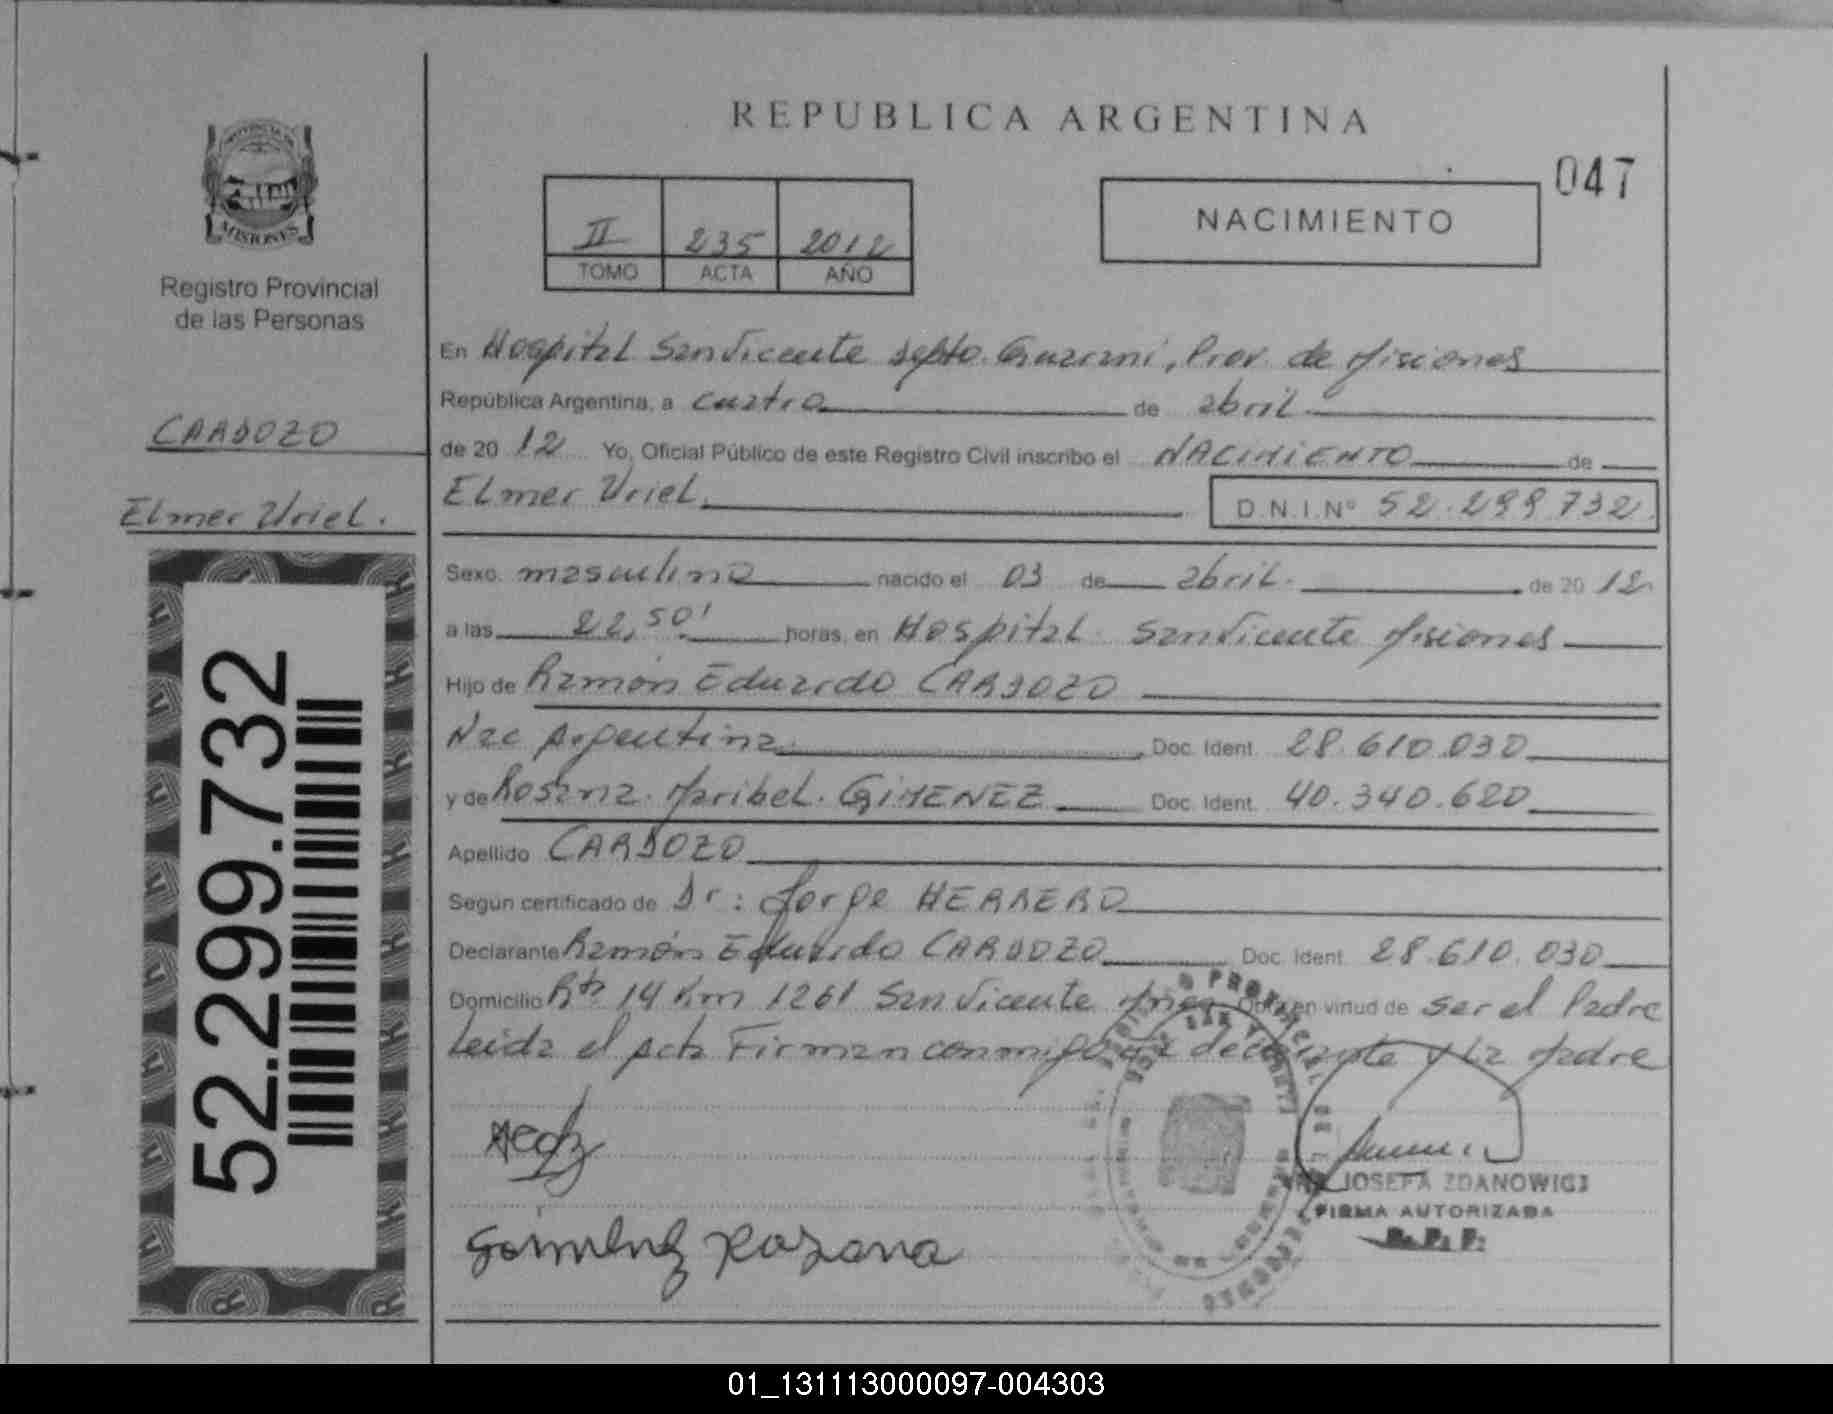 REPUBLICA ARGENTINA
047
II 235 2012
TOMO ACTA AÑO
NACIMIENTO
MISIONES
Registro Provincial
de las Personas
CARDOZO
Elmer Uriel.
52.299.732
En Hospital San Vicente depto. Guaraní, Prov. de Misiones
República Argentina, a cuatro de abril
de 20 12 Yo, Oficial Público de este Registro Civil inscribo el NACIMIENTO de
Elmer Uriel. D.N.I.Nº 52.299.732
Sexo. masculino nacido el 03 de abril. de 20 12
a las 22,50' horas, en Hospital San Vicente Misiones
Hijo de Ramón Eduardo CARDOZO
Nac Argentina Doc. Ident. 28.610.030
y de Rosana Maribel. GIMENEZ Doc. Ident. 40.340.620
Apellido CARDOZO
Según certificado de Dr: Jorge HERRERO
Declarante Ramón Eduardo CARDOZO Doc. Ident. 28.610.030
Domicilio Rta 14 Km 1261 San Vicente Mnes en virtud de ser el Padre
Leida el Acta Firman conmigo declarante y la Madre
Gimenez Rosana
JOSEFA ZDANOWICZ
FIRMA AUTORIZADA
R. P. P.
01_131113000097-004303